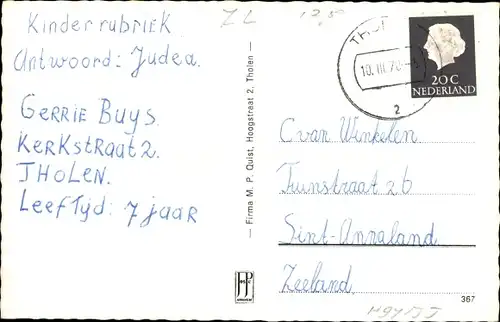 Kinderrubriek
Antwoord: Judea.
GERRIE BUYS
KERKSTRAAT 2.
THOLEN.
LEEFTIJD: 7 JAAR
ZL
12,5
— Firma M. P. Quist, Hoogstraat 2, Tholen —
THOL
10. III. 70
2
20 C
NEDERLAND
C van Winkelen.
Tuinstraat 26
Sint-Annaland.
Zeeland.
JP
367